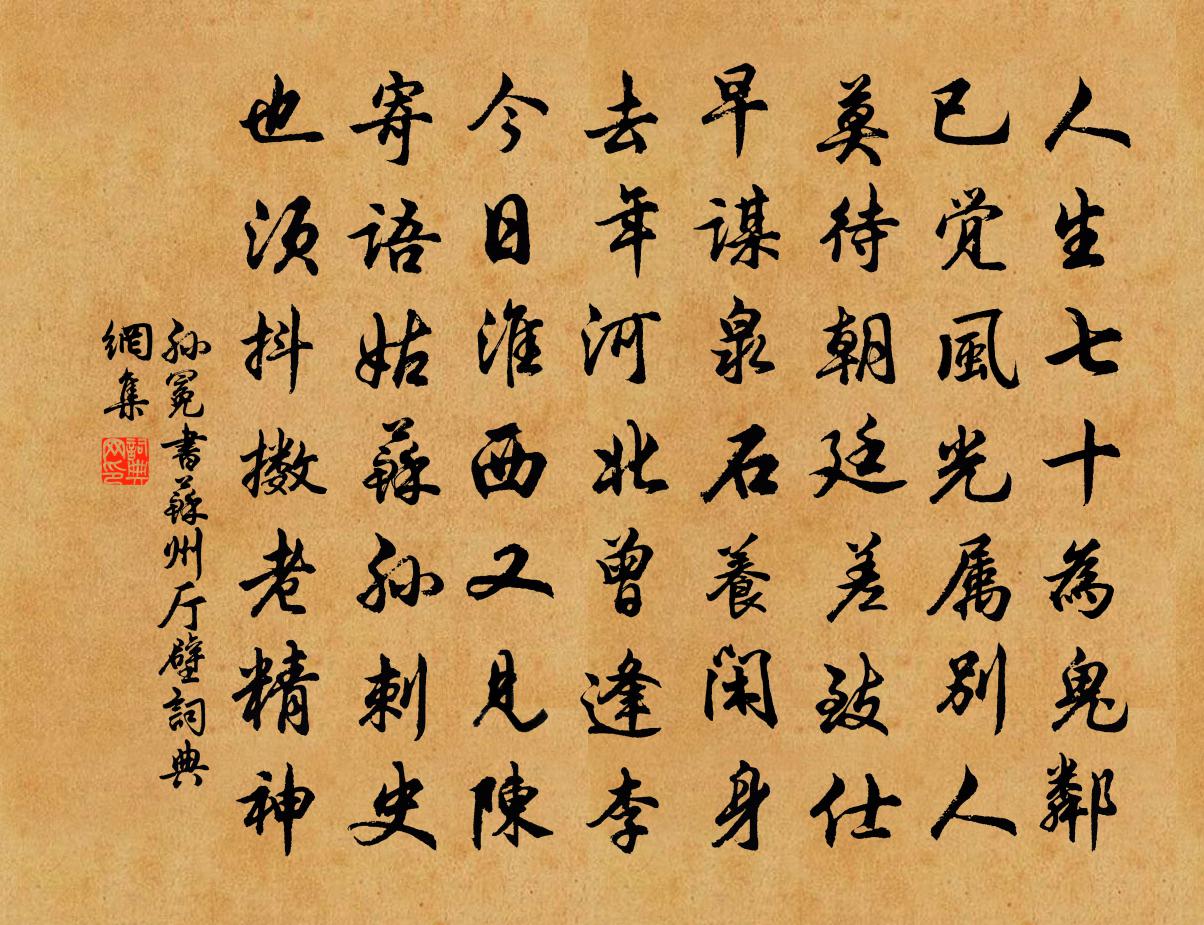 人生七十為鬼鄰
已觉風光属別人
莫待朝廷差致仕
早谋泉石養閑身
去年河北曾逢李
今日淮西又見陳
寄語姑蘇孙刺史
也須抖擞老精神
孙冕書蘇州厅壁詞典
網集
詞典
网印